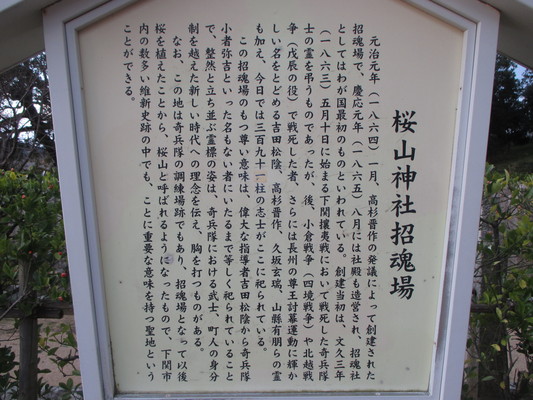 桜山神社招魂場
元治元年（一八六四）一月、高杉晋作の発議によって創建された
招魂場で、慶応元年（一八六五）八月には社殿も造営され、招魂社
としてはわが国最初のものといわれている。創建当初は、文久三年
（一八六三）五月十日に始まる下関攘夷戦において戦死した奇兵
士の霊を弔うものであったが、後、小倉戦争（四境戦争）や北越戦
争（戊辰の役）で戦死した者、さらには長州の尊王討幕運動に輝か
しい名をとどめる吉田松陰、高杉晋作、久坂玄瑞、山縣有朋らの霊
も加え、今日では三百九十一柱の志士がここに祀られている。
この招魂場のもつ尊い意味は、偉大な指導者吉田松陰から奇兵隊
小者弥吉といった名もない者にいたるまで等しく祀られていること
で、整然と立ち並ぶ霊標の姿は、奇兵隊における武士、町人の身分
制を越えた新しい時代への理念を伝え、胸を打つものがある。
なお、この地は奇兵隊の調練場跡でもあり、招魂場となって以後
桜を植えたことから、桜山と呼ばれるようになったもので、下関市
内の数多い維新史跡の中でも、ことに重要な意味を持つ聖地という
ことができる。